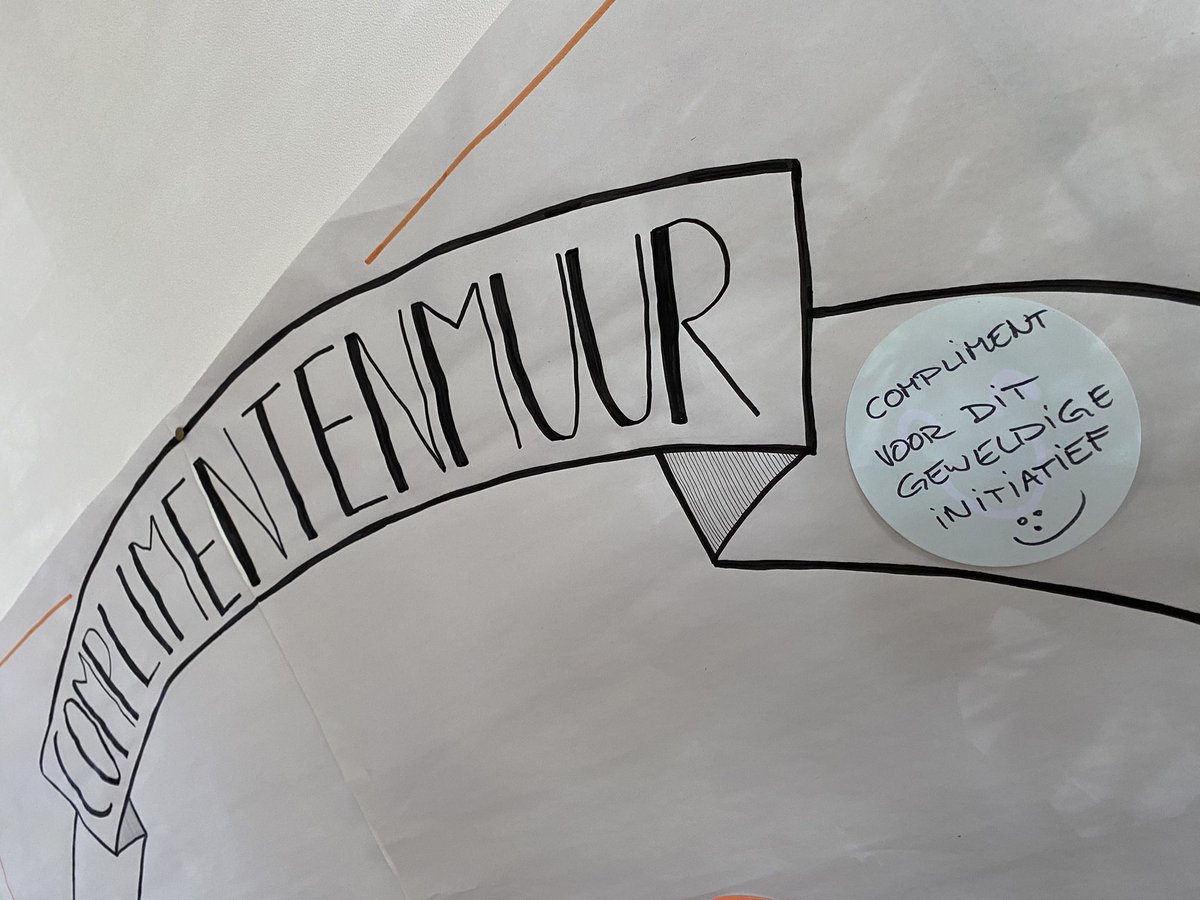 COMPLIMENTENMUUR
COMPLIMENT
VOOR DIT
GEWELDIGE
INITIATIEF